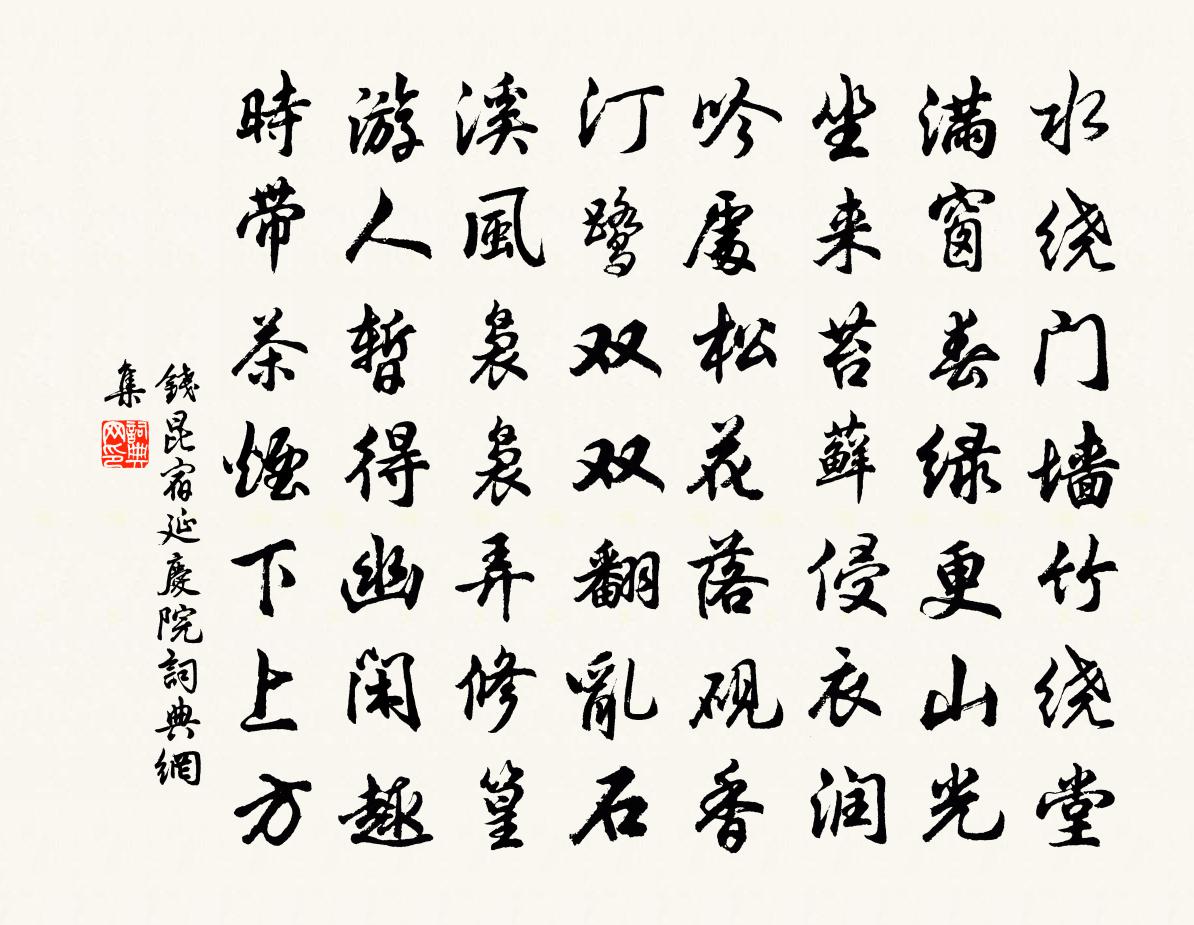 水绕门墙竹绕堂
满窗春绿更山光
坐来苔藓侵衣润
吟處松花落砚香
汀鹭双双翻乱石
溪風袅袅弄修篁
游人暫得幽闲趣
時带茶煙下上方
錢昆宿延慶院詞典網
集
詞典
网印